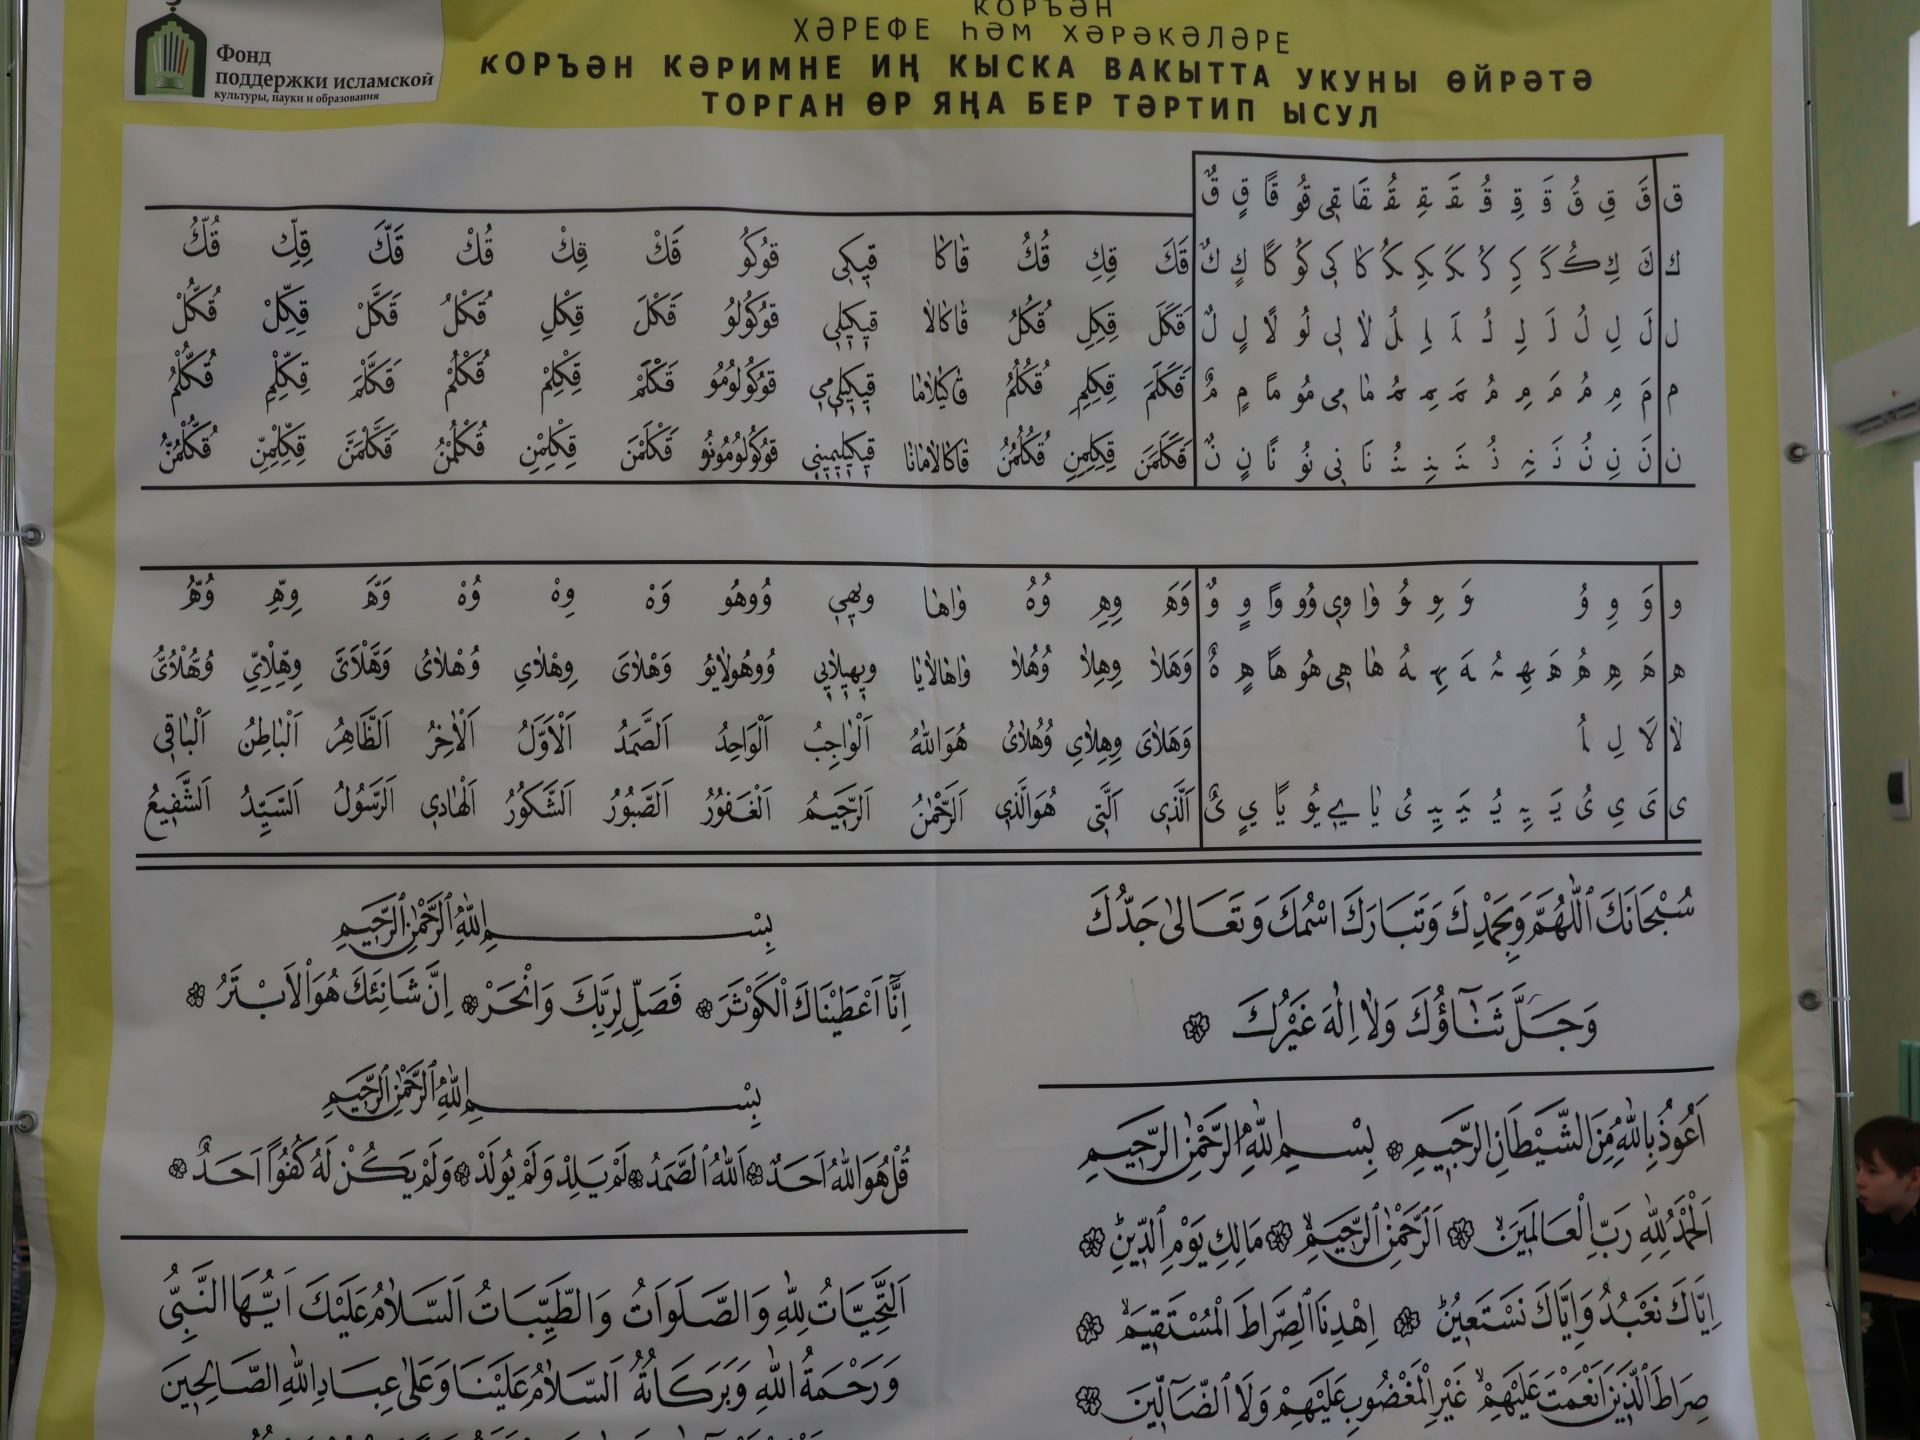 Фонд
поддержки исламской
культуры, науки и образования
КОРЪӘН
ХӘРЕФЕ ҺӘМ ХӘРӘКӘЛӘРЕ
КОРЪӘН КӘРИМНЕ ИҢ КЫСКА ВАКЫТТА УКУНЫ ӨЙРӘТӘ
ТОРГАН ӨР ЯҢА БЕР ТӘРТИП ЫСУЛ
ق قَ قِ قُ قَ قِ قُ قَ قِ قُ قَا قِى قُو قًا قٍ قٌ
ك كَ كِ كُ كَ كِ كُ كَ كِ كُ كَا كِى كُو كًا كٍ كٌ قَكَ قِكِ قُكُ قَاكَا قِيكِى قُوكُو قَكْ قِكْ قُكْ قَكَّ قِكِّ قُكُّ
ل لَ لِ لُ لَ لِ لُ لَ لِ لُ لَا لِى لُو لًا لٍ لٌ قَكَلَ قِكِلِ قُكُلُ قَاكَالَا قِيكِيلِى قُوكُولُو قَكْلَ قِكْلِ قُكْلُ قَكَّلْ قِكِّلْ قُكُّلْ
م مَ مِ مُ مَ مِ مُ مَ مِ مُ مَا مِى مُو مًا مٍ مٌ قَكَلَمَ قِكِلِمِ قُكُلُمُ قَاكَالَامَا قِيكِيلِيمِى قُوكُولُومُو قَكْلَمْ قِكْلِمْ قُكْلُمْ قَكَّلْمَ قِكِّلْمِ قُكُّلْمُ
ن نَ نِ نُ نَ نِ نُ نَ نِ نُ نَا نِى نُو نًا نٍ نٌ قَكَلَمَنَ قِكِلِمِنِ قُكُلُمُنُ قَاكَالَامَانَا قِيكِيلِيمِينِى قُوكُولُومُونُو قَكْلَمْنَ قِكْلِمْنِ قُكْلُمْنُ قَكَّلْمَنَّ قِكِّلْمِنِّ قُكُّلْمُنُّ
و وَ وِ وُ وَ وِ وُ وَا وِى وُو وًا وٍ وٌ وَهَ وِهِ وُهُ وَاهَا وِيهِى وُوهُو وَهْ وِهْ وُهْ وَهَّ وِهِّ وُهُّ
ه هَ هِ هُ هَ هِ هُ هَ هِ هُ هَا هِى هُو هًا هٍ هٌ وَهَلَا وِهِلَا وُهُلَا وَاهَالَايَا وِيهِيلَايِى وُوهُولَايُو وَهْلَاىَ وِهْلَاىِ وُهْلَاىُ وَهَّلْاَىَّ وِهِّلْاِىِّ وُهُّلْاُىُّ
لا لَا لِ لُا وَهَلَاىَ وِهِلَاىِ وُهُلَاىُ هُوَاللّٰهُ اَلْوَاجِبُ اَلْوَاحِدُ اَلصَّمَدُ اَلْاَوَّلُ اَلْاٰخِرُ اَلظَّاهِرُ اَلْبَاطِنُ اَلْبَاقِى
ى ىَ ىِ ىُ يَ يِ يُ يَ يِ ىُ يَا يِى يُو يًا ىٍ ىٌ اَلَّذِى اَلَّتِى هُوَالَّذِى اَلرَّحْمٰنُ اَلرَّحِيمُ اَلْغَفُورُ اَلصَّبُورُ اَلشَّكُورُ اَلْهَادِى اَلرَّسُولُ اَلسَّيِّدُ اَلشَّفِيعُ
سُبْحَانَكَ اَللّٰهُمَّ وَبِحَمْدِكَ وَتَبَارَكَ اسْمُكَ وَتَعَالٰى جَدُّكَ
وَجَلَّ ثَنَٓاؤُكَ وَلَا اِلٰهَ غَيْرُكَ
اَعُوذُ بِاللّٰهِ مِنَ الشَّيْطَانِ الرَّجِيمِ بِسْمِ اللّٰهِ الرَّحْمٰنِ الرَّحِيمِ
اَلْحَمْدُ لِلّٰهِ رَبِّ الْعَالَمِينَ اَلرَّحْمٰنِ الرَّحِيمِ مَالِكِ يَوْمِ الدِّينِ
اِيَّاكَ نَعْبُدُ وَاِيَّاكَ نَسْتَعِينُ اِهْدِنَا الصِّرَاطَ الْمُسْتَقِيمَ
صِرَاطَ الَّذِينَ اَنْعَمْتَ عَلَيْهِمْ غَيْرِ الْمَغْضُوبِ عَلَيْهِمْ وَلَا الضَّٓالِّينَ
بِسْمِ اللّٰهِ الرَّحْمٰنِ الرَّحِيمِ
اِنَّٓا اَعْطَيْنَاكَ الْكَوْثَرَ فَصَلِّ لِرَبِّكَ وَانْحَرْ اِنَّ شَانِئَكَ هُوَ الْاَبْتَرُ
بِسْمِ اللّٰهِ الرَّحْمٰنِ الرَّحِيمِ
قُلْ هُوَ اللّٰهُ اَحَدٌ اَللّٰهُ الصَّمَدُ لَمْ يَلِدْ وَلَمْ يُولَدْ وَلَمْ يَكُنْ لَهُ كُفُوًا اَحَدٌ
اَلتَّحِيَّاتُ لِلّٰهِ وَالصَّلَوَاتُ وَالطَّيِّبَاتُ اَلسَّلَامُ عَلَيْكَ اَيُّهَا النَّبِىُّ
وَرَحْمَةُ اللّٰهِ وَبَرَكَاتُهُ اَلسَّلَامُ عَلَيْنَا وَعَلٰى عِبَادِ اللّٰهِ الصَّالِحِينَ